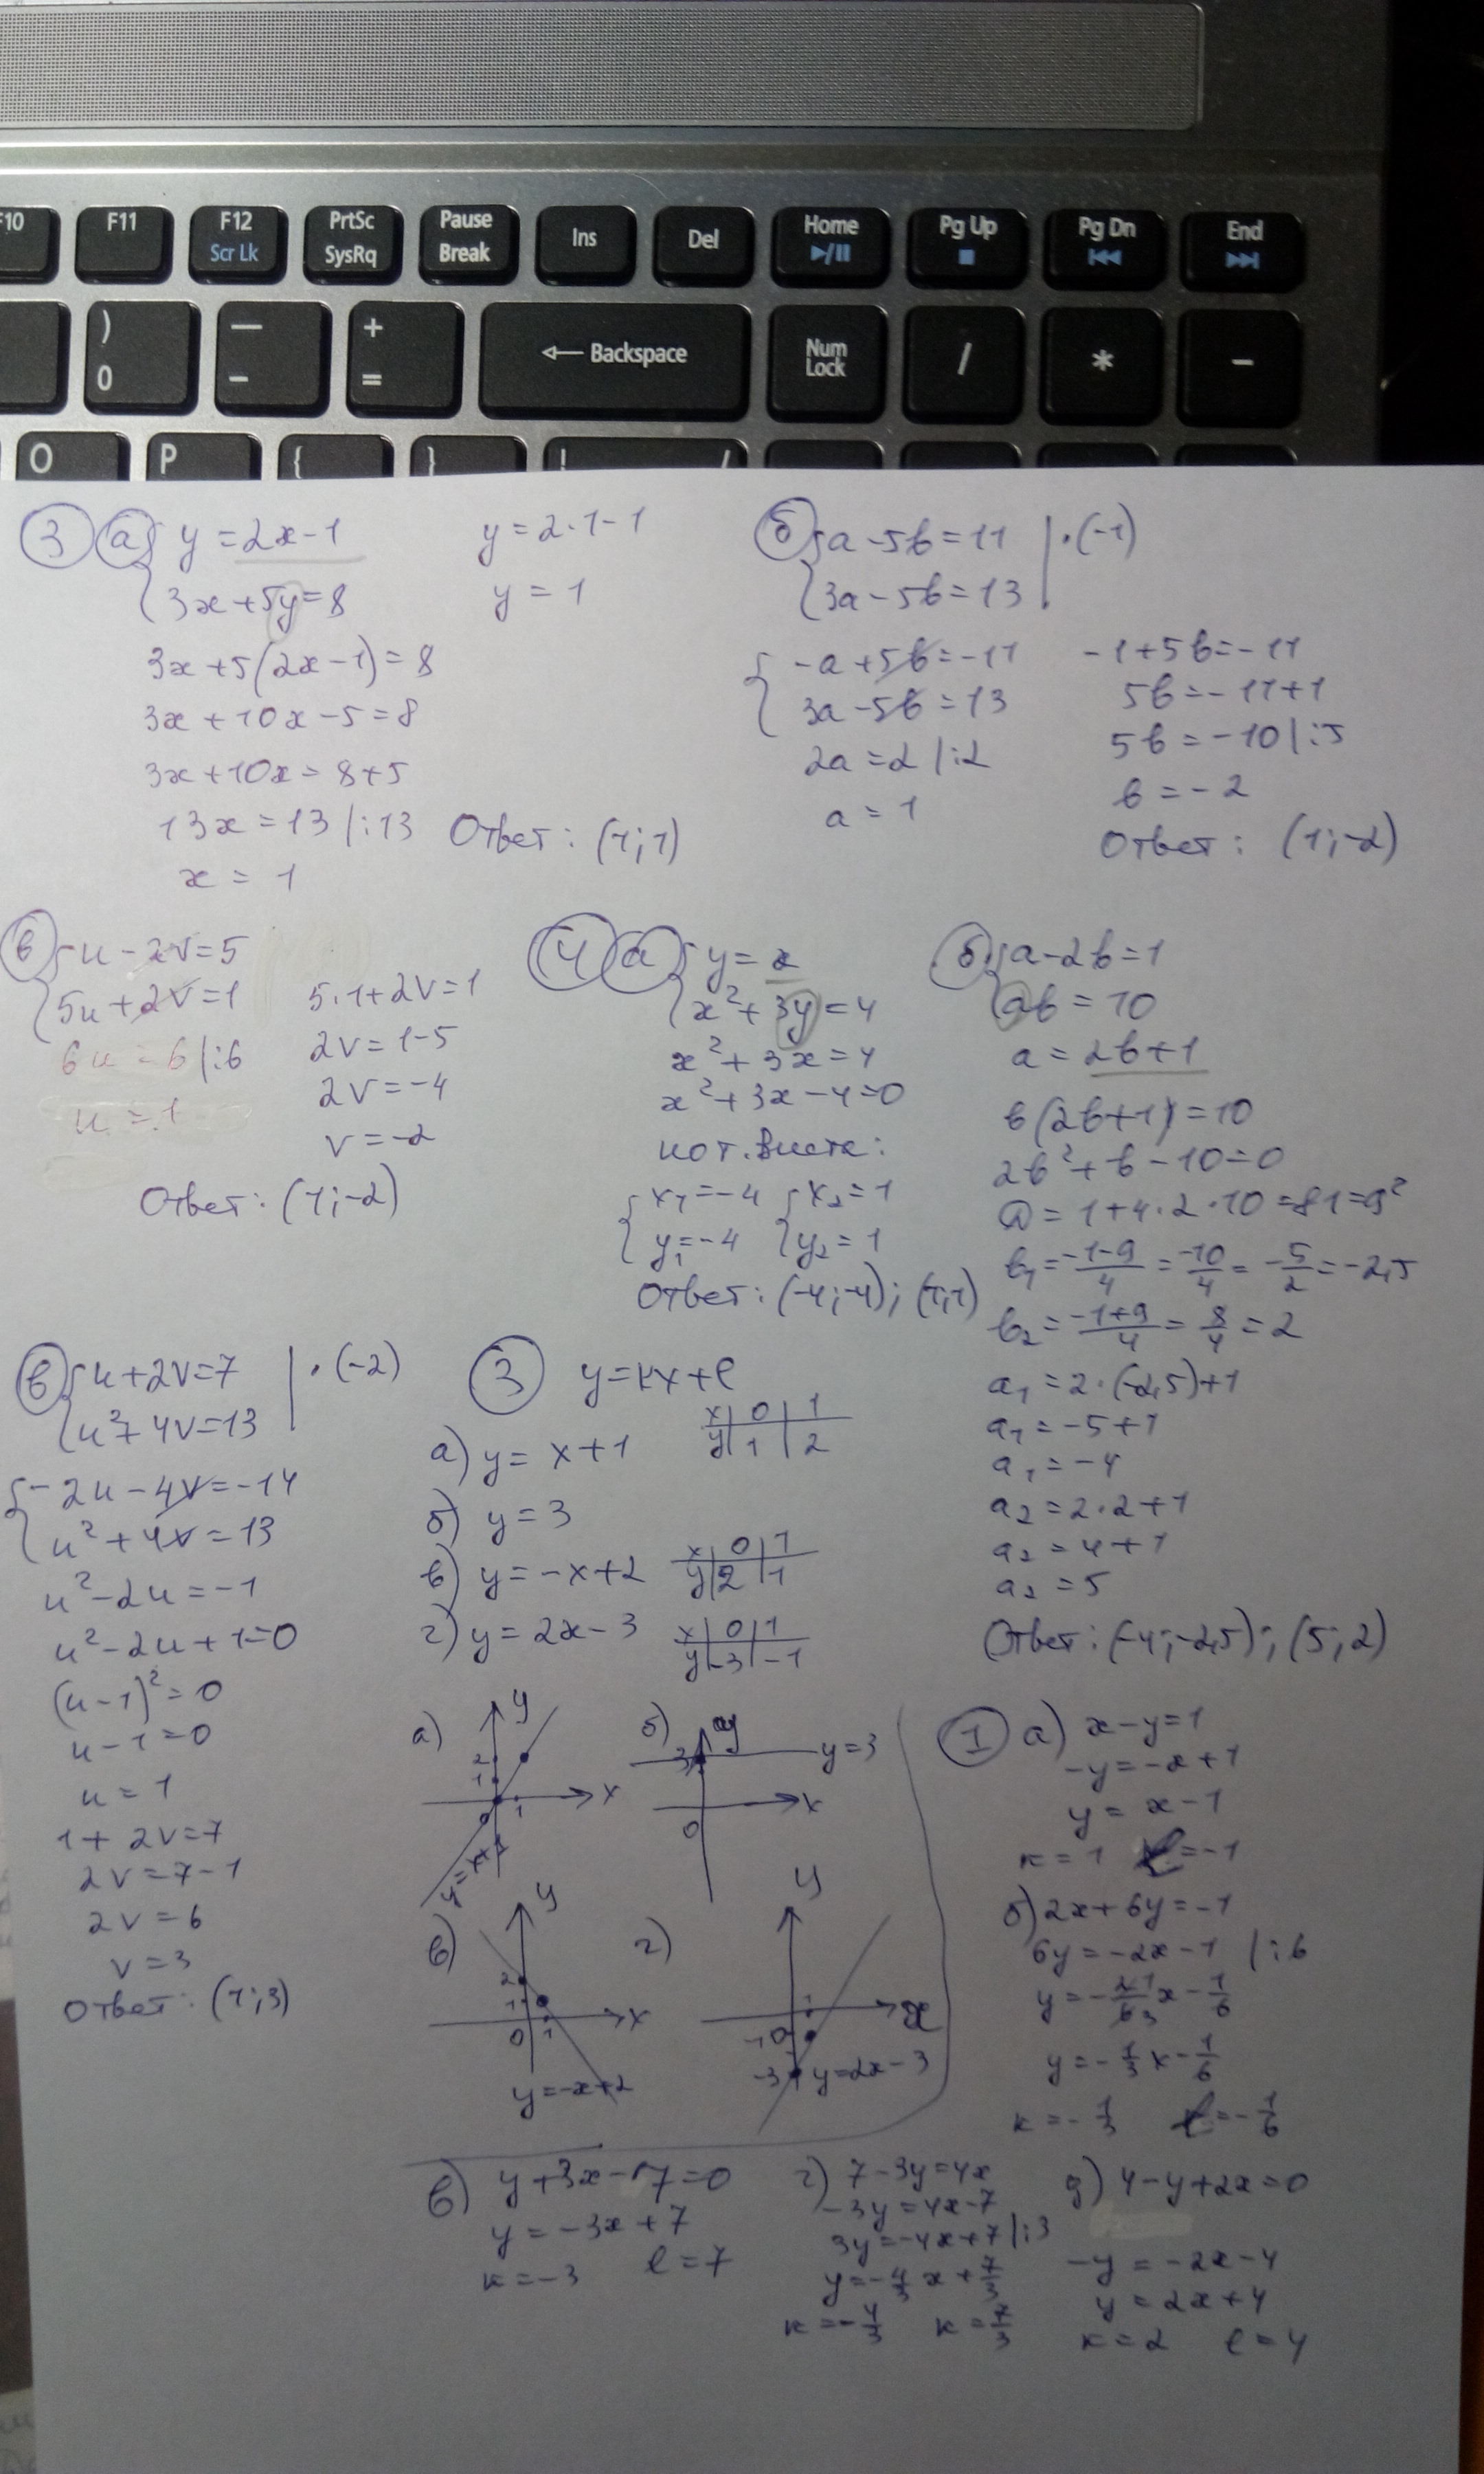 F10 F11 F12 PrtSc Pause Ins Del Home Pg Up Pg Dn End
Scr Lk SysRq Break
) — +
← Backspace Num Lock / * −
0 - =
O P { } ! /
3 а { y = 2x-1
3x+5y=8
3x+5(2x-1)=8
3x+10x-5=8
3x+10x=8+5
13x=13 |:13
x = 1
y=2·1-1
y = 1
Ответ: (1;1)
б { a-5b=11 | ·(-1)
3a-5b=13
{ -a+5b=-11
3a-5b=13
2a=2 |:2
a=1
-1+5b=-11
5b=-11+1
5b=-10 |:5
b=-2
Ответ: (1;-2)
в { u-2v=5
5u+2v=1
6u=6 |:6
u=1
5·1+2v=1
2v=1-5
2v=-4
v=-2
Ответ: (1;-2)
4 а { y=x
x²+3y=4
x²+3x=4
x²+3x-4=0
по т. Виета:
{ x₁=-4 { x₂=1
y₁=-4 y₂=1
Ответ: (-4;-4); (1;1)
б { a-2b=1
ab=10
a=2b+1
b(2b+1)=10
2b²+b-10=0
D=1+4·2·10=81=9²
b₁=(-1-9)/4=-10/4=-5/2=-2,5
b₂=(-1+9)/4=8/4=2
a₁=2·(-2,5)+1
a₁=-5+1
a₁=-4
a₂=2·2+1
a₂=4+1
a₂=5
Ответ: (-4;-2,5); (5;2)
в { u+2v=7 | ·(-2)
u²+4v=13
{ -2u-4v=-14
u²+4v=13
u²-2u=-1
u²-2u+1=0
(u-1)²=0
u-1=0
u=1
1+2v=7
2v=7-1
2v=6
v=3
Ответ: (1;3)
3 y=kx+l
а) y=x+1 x|0|1
y|1|2
б) y=3
в) y=-x+2 x|0|1
y|2|1
г) y=2x-3 x|0|1
y|-3|-1
а) y 2 1 0 1 x y=x+1
б) y 3 y=3 0 x
в) y 2 1 0 1 x y=-x+2
г) y 1 x -1 0 -3 y=2x-3
1 а) x-y=1
-y=-x+1
y=x-1
k=1 l=-1
б) 2x+6y=-1
6y=-2x-1 |:6
y=-2/6x-1/6
y=-1/3x-1/6
k=-1/3 l=-1/6
в) y+3x-7=0
y=-3x+7
k=-3 l=7
г) 7-3y=4x
-3y=4x-7
3y=-4x+7 |:3
y=-4/3x+7/3
k=-4/3 k=7/3
д) 4-y+2x=0
-y=-2x-4
y=2x+4
k=2 l=4